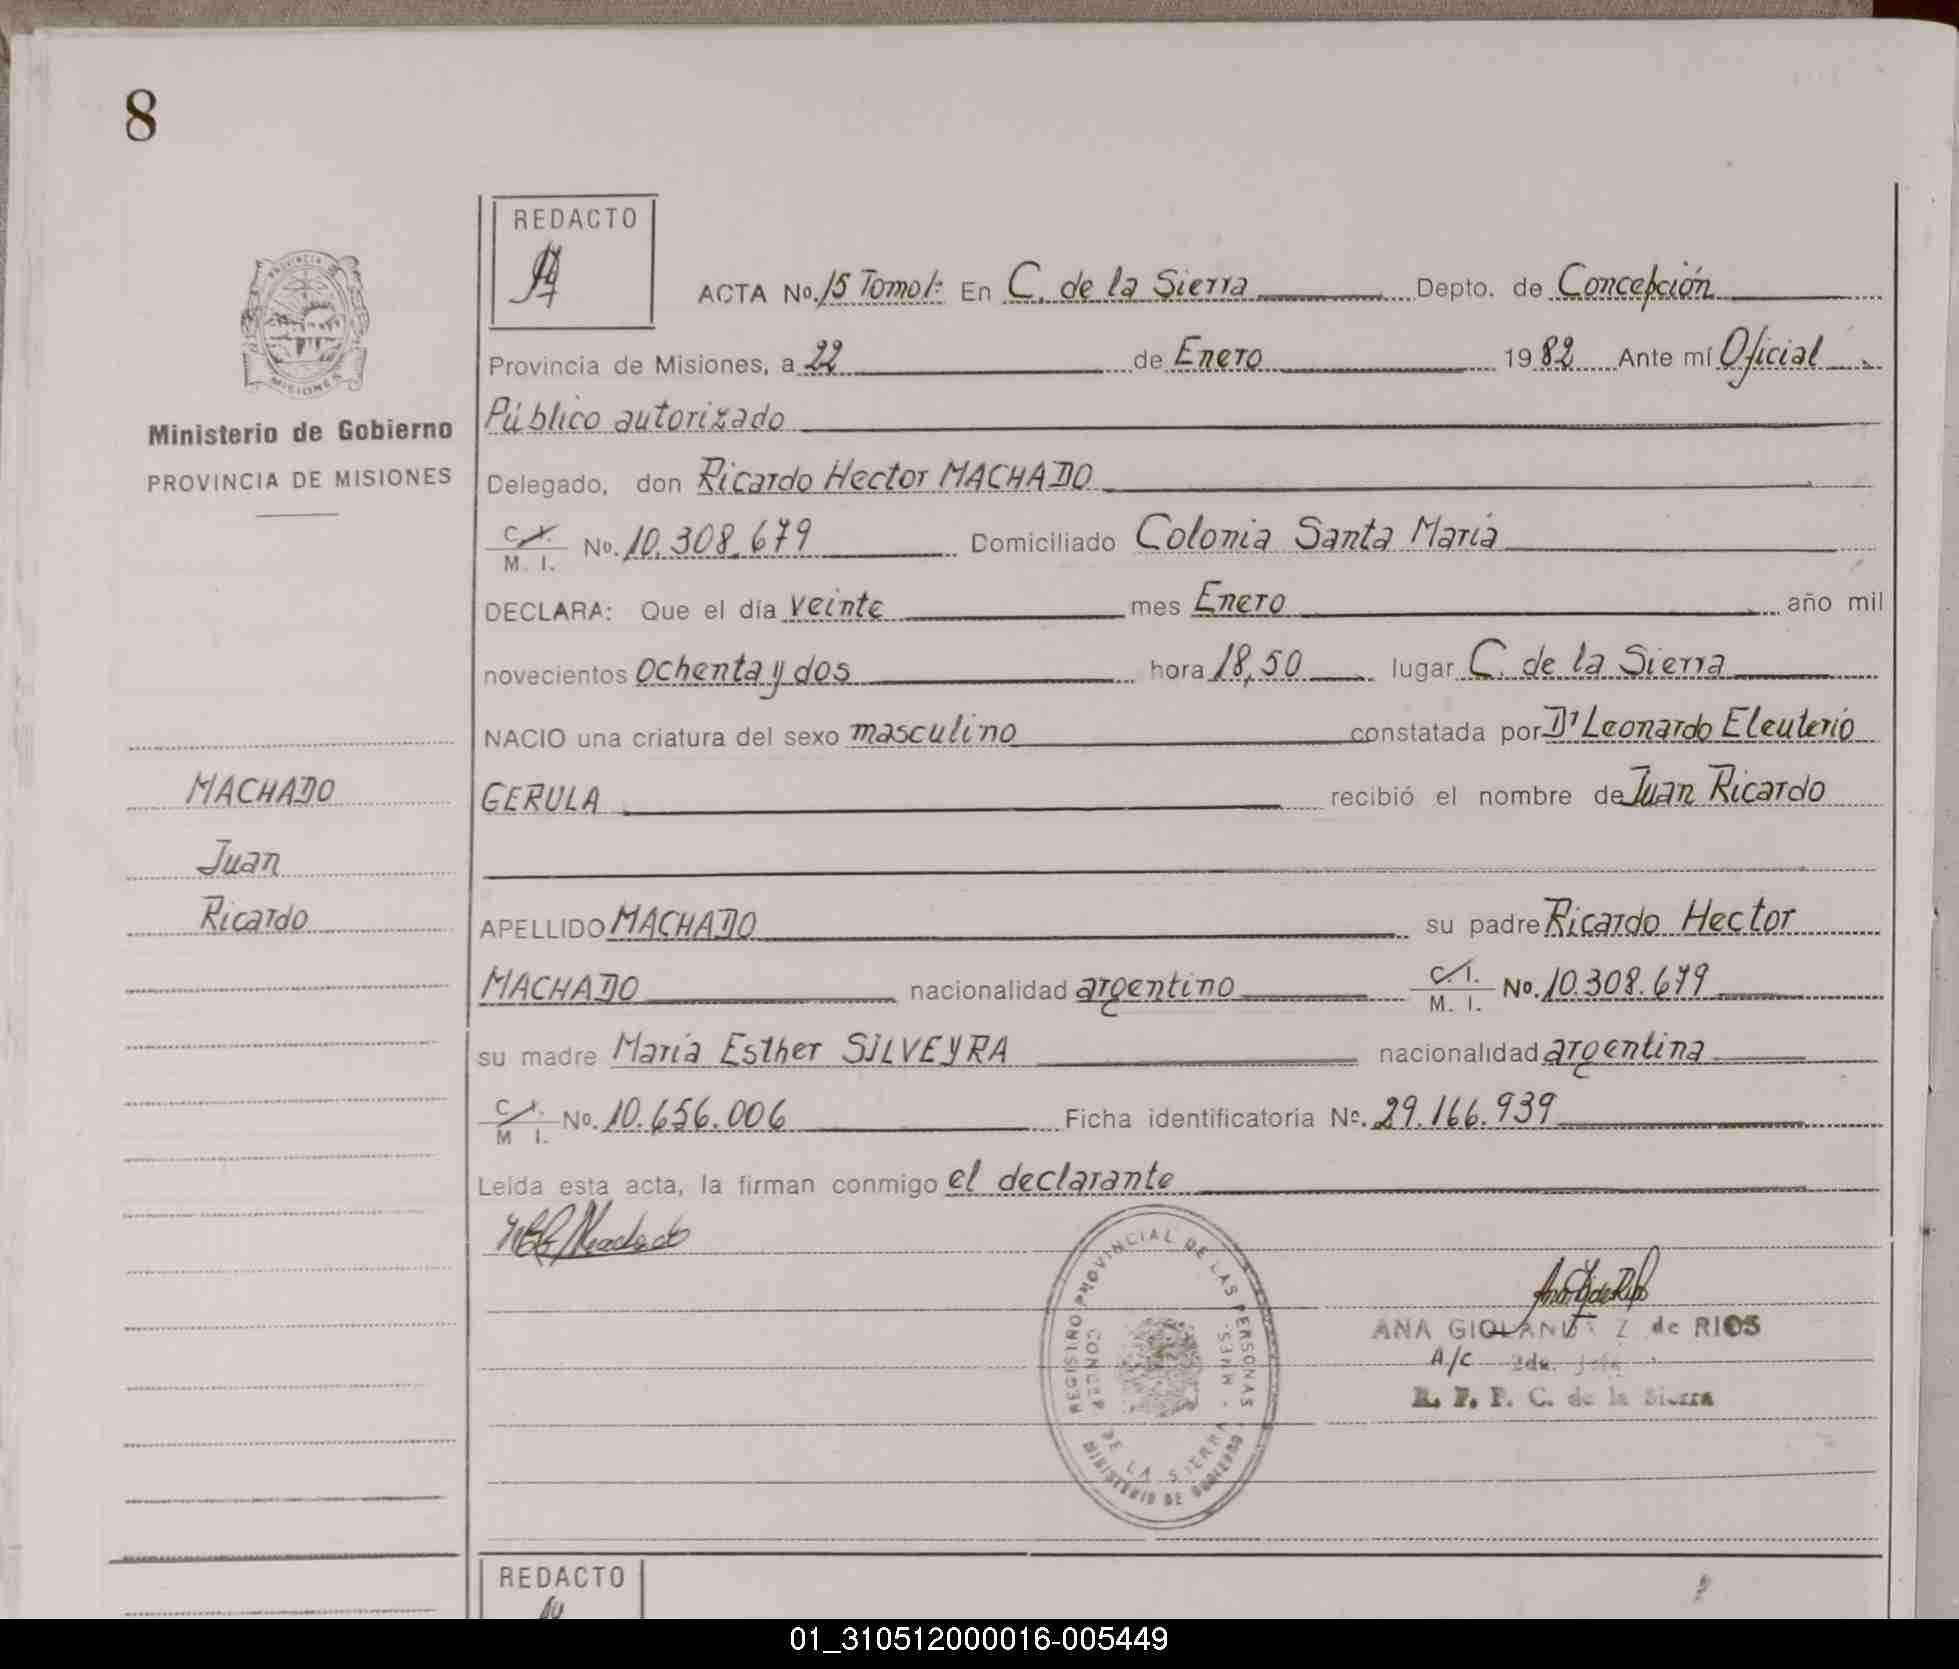 8
REDACTO
ACTA No. 15 Tomo 1: En C. de la Sierra Depto. de Concepción
Provincia de Misiones, a 22 de Enero 1982 Ante mí Oficial
Público autorizado
Ministerio de Gobierno
PROVINCIA DE MISIONES
Delegado, don Ricardo Hector MACHADO
C.I. M. I. No. 10.308.679 Domiciliado Colonia Santa María
DECLARA: Que el día veinte mes Enero año mil
novecientos ochenta y dos hora 18,50 lugar C. de la Sierra
NACIO una criatura del sexo masculino constatada por Dr Leonardo Eleuterio
MACHADO
GERULA recibió el nombre de Juan Ricardo
Juan
Ricardo
APELLIDO MACHADO su padre Ricardo Hector
MACHADO nacionalidad argentino C.I. M. I. No. 10.308.679
su madre María Esther SILVEYRA nacionalidad argentina
C.I. M I. No. 10.656.006 Ficha identificatoria No. 29.166.939
Leída esta acta, la firman conmigo el declarante
Machado
REGISTRO PROVINCIAL DE LAS PERSONAS
CONCEP. DE LA SIERRA - MNES.
MINISTERIO DE GOBIERNO
ANA Z de RIOS
A/C 2da.
R. P. P. C. de la Sierra
REDACTO
01_310512000016-005449